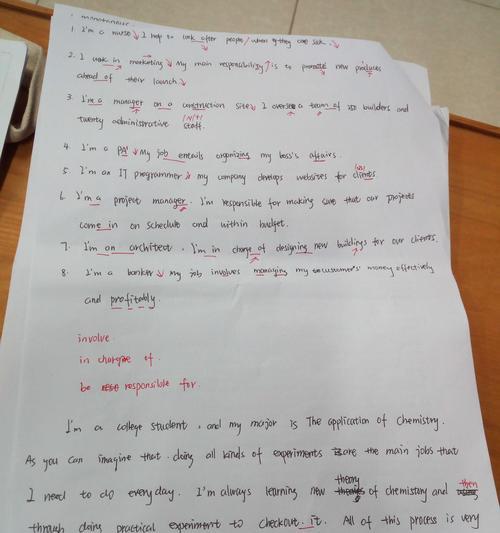 1. I'm a nurse I help to look after people / when they are sick.
2. I work in marketing My main responsibility is to promote new produces
ahead of their launch
3. I'm a manager on a construction site I oversee a team of 150 builders and
twenty administrative staff.
4. I'm a PA My job entails organizing my boss's affairs.
5. I'm an IT programmer my company develops websites for clients
6. I'm a project manager. I'm responsible for making sure that our projects
come in on schedule and within budget.
7. I'm an architect. I'm in charge of designing new buildings for our clients.
8. I'm a banker My job involves managing my customer's money effectively
and profitably.
involve
in charge of.
be responsible for.
I'm a college student, and my major is The application of chemistry.
As you can imagine that. doing all kinds of experiments are the main jobs that
theory then
I need to do everyday. I'm always learning new of chemistry and
through doing practical experiment to checkout it. All of this process is very